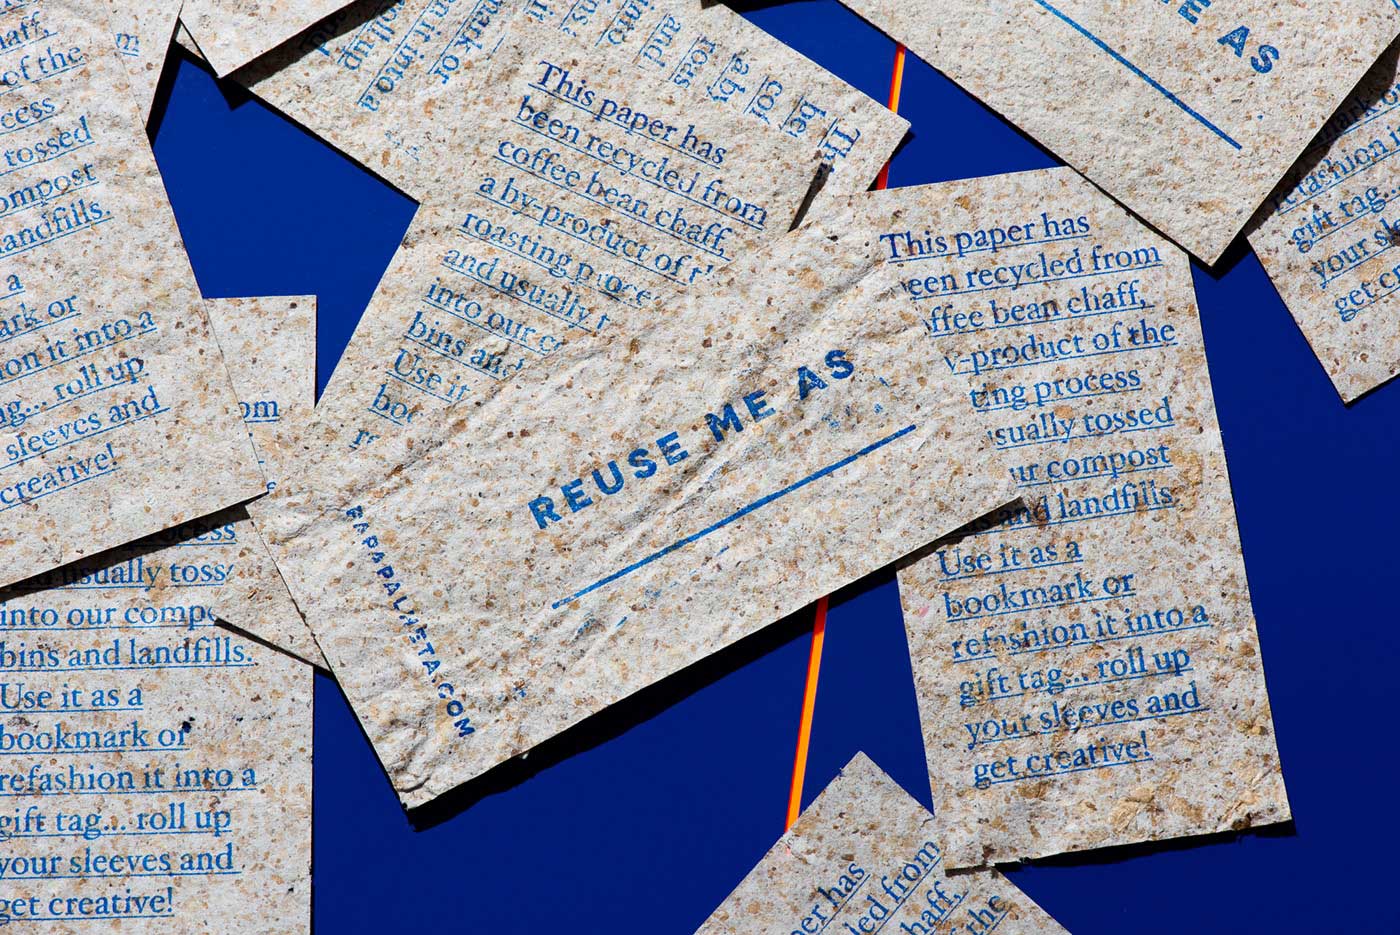 haff,
of the
cess
tossed
ompost
landfills.
a
ark or
ion it into a
ag... roll up
sleeves and
creative!
om
mark or
n it into a
roll up
and
This paper has
been recycled from
coffee bean chaff,
a by-product of t
roasting proce
and usually t
into our co
bins and
Use it
bo
r
REUSE ME AS
E AS
This paper has
een recycled from
ffee bean chaff,
y-product of the
ting process
usually tossed
ur compost
and landfills.
Use it as a
bookmark or
refashion it into a
gift tag... roll up
your sleeves and
get creative!
fashion
gift tag.
your sl
get c
ocess
usually tosse
into our compo
bins and landfills.
Use it as a
bookmark or
refashion it into a
gift tag... roll up
your sleeves and
get creative!
per has
led from
haff,
the